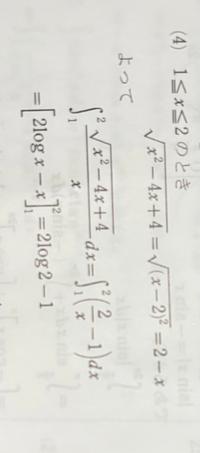 (4) 1≦x≦2のとき
√(x²−4x+4)=√((x−2)²)=2−x
よって
∫₁² √(x²−4x+4)/x dx=∫₁²(2/x−1)dx
=[2logx−x]₁²=2log2−1